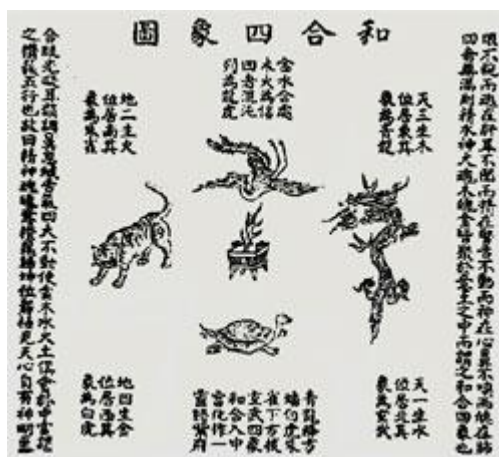 和合四象圖
眼不視而魂在肝耳不聞而精在腎舌不動而神在心鼻不嗅而魄在肺
四者無漏則精水神火魂木魄金皆聚於意土之中而謂之和合四象也
天三生木
位居東其
象為青龍
金水合處
木火為侶
四者混沌
列為龍虎
地二生火
位居南其
象為朱雀
天一生水
位居北其
象為玄武
青龍方
虎朱
雀下方
玄武四象
和合入中
宮化作一
靈歸紫府
地四生金
位居西其
象為白虎
合眼光凝耳韻調鼻息緘舌氣四大不動使金木水火土俱會於中宮謂
之攢簇五行也故曰精神魂魄意攢簇歸坤位靜極見天心自有神明至